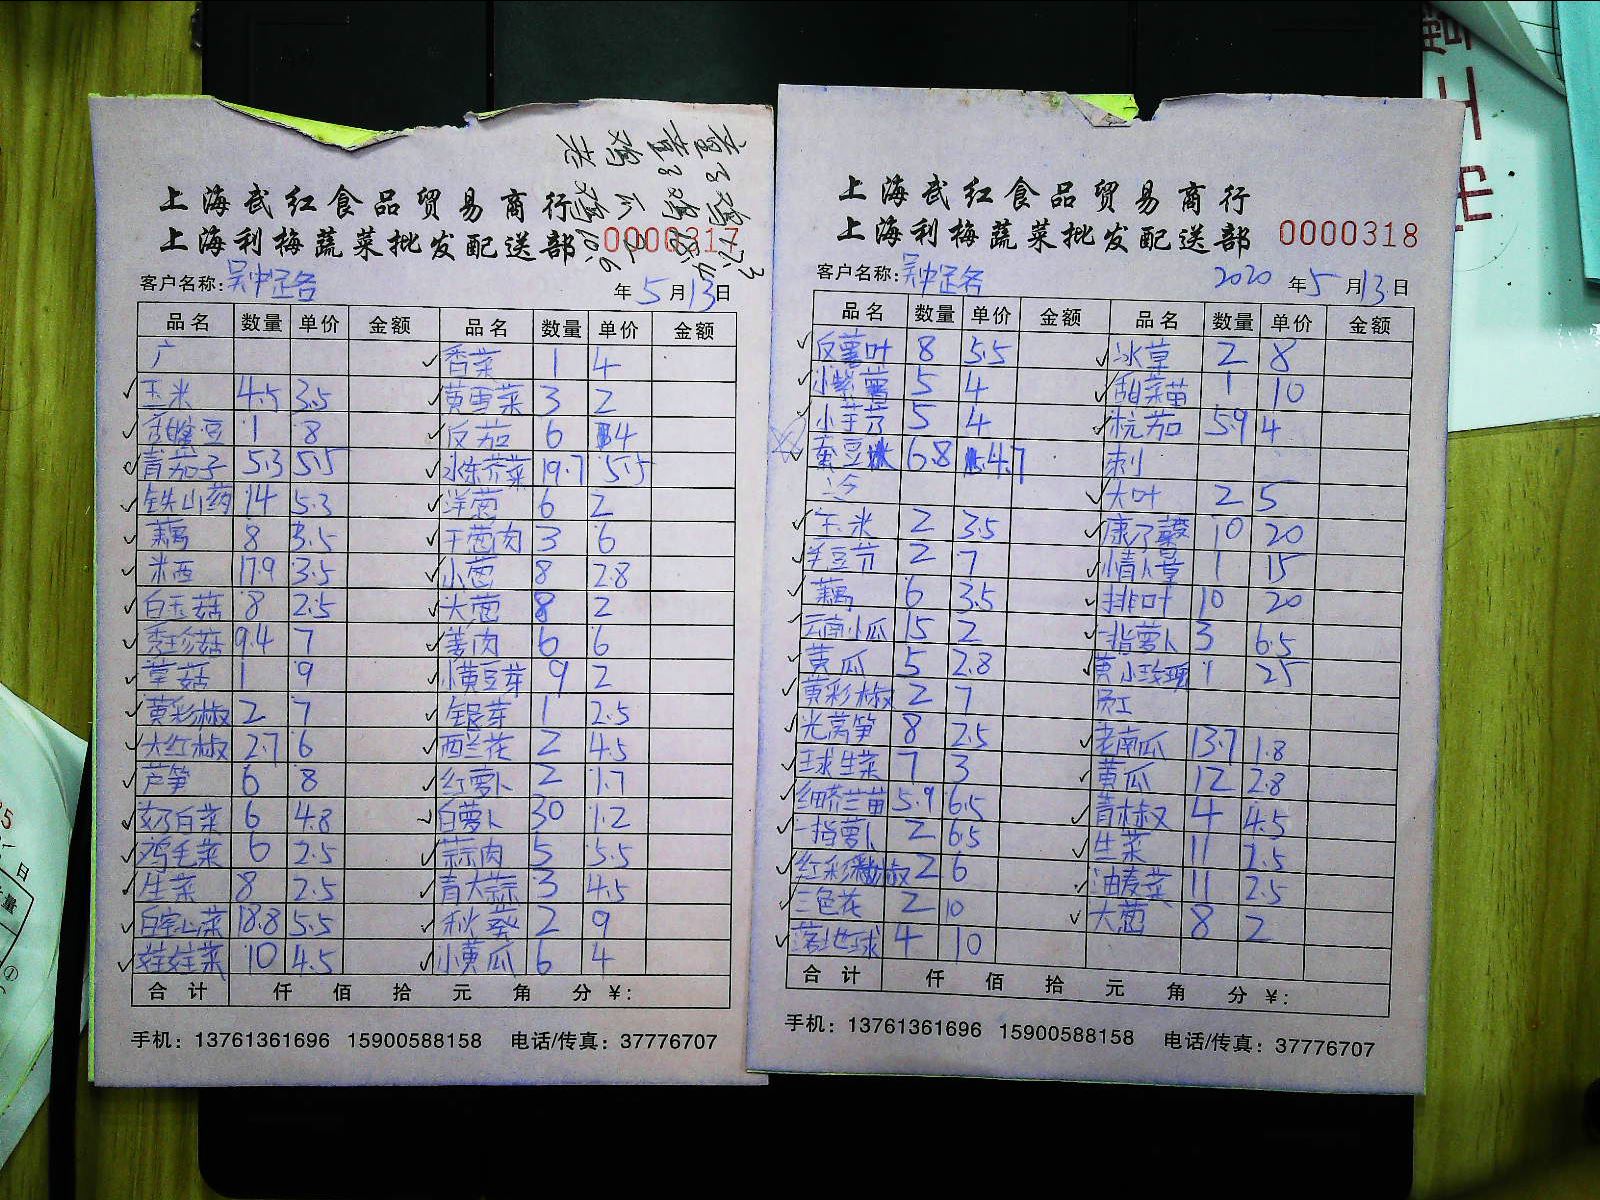 上海武红食品贸易商行
上海利梅蔬菜批发配送部 0000317
客户名称: 吴中路名 年 5 月 13 日
品名 数量 单价 金额 品名 数量 单价 金额
广 香菜 1 4
玉米 4.5 3.5 黄雪菜 3 2
豆 1 8 反茄 6 4
青茄子 5.3 5.5 水东芥菜 19.7 5.5
铁山药 14 5.3 洋葱 6 2
藕 8 3.5 干葱肉 3 6
米西 17.9 3.5 小葱 8 2.8
白玉菇 8 2.5 大葱 8 2
秀珍菇 9.4 7 姜肉 6 6
草菇 1 9 小黄豆芽 9 2
黄彩椒 2 7 银芽 1 2.5
大红椒 2.7 6 西兰花 2 4.5
芦笋 6 8 红萝卜 2 1.7
奶白菜 6 4.8 白萝卜 30 1.2
鸡毛菜 6 2.5 蒜肉 5 5.5
生菜 8 2.5 青大蒜 3 4.5
白空心菜 18.8 5.5 秋葵 2 9
娃娃菜 10 4.5 小黄瓜 6 4
合计 仟 佰 拾 元 角 分 ¥:
手机: 13761361696 15900588158 电话/传真: 37776707
上海武红食品贸易商行
上海利梅蔬菜批发配送部 0000318
客户名称: 吴中路名 2020 年 5 月 13 日
品名 数量 单价 金额 品名 数量 单价 金额
反薯叶 8 5.5 冰草 2 8
小紫薯 5 4 甜菜苗 1 10
小芋艿 5 4 杭茄 5.9 4
蚕豆 6.8 4.7 刺
沙 大叶 2 5
玉米 2 3.5 康乃馨 10 20
毛豆节 2 7 情人草 1 15
藕 6 3.5 排叶 10 20
云南小瓜 15 2 一指萝卜 3 6.5
黄瓜 5 2.8 黄小玫瑰 1 25
黄彩椒 2 7 员工
光莴笋 8 2.5 老南瓜 13.7 1.8
球生菜 7 3 黄瓜 12 2.8
细芥兰苗 5.9 6.5 青椒 4 4.5
一指萝卜 2 6.5 生菜 11 2.5
红彩椒 2 6 油麦菜 11 2.5
三色花 2 10 大葱 8 2
落地球 4 10
合计 仟 佰 拾 元 角 分 ¥:
手机: 13761361696 15900588158 电话/传真: 37776707